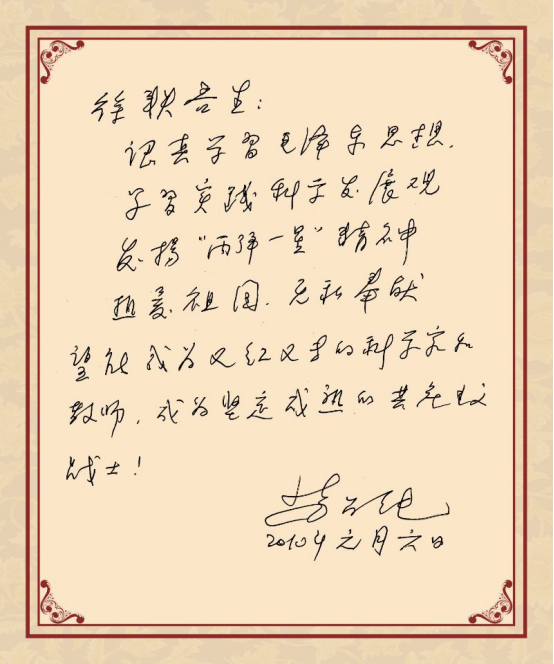 徐耿同志：
认真学习毛泽东思想.
学习实践科学发展观
发扬“两弹一星”精神
热爱祖国.无私奉献
望能成为又红又专的科学家和
教师，成为坚定成熟的共产主义
战士！
2010年元月六日